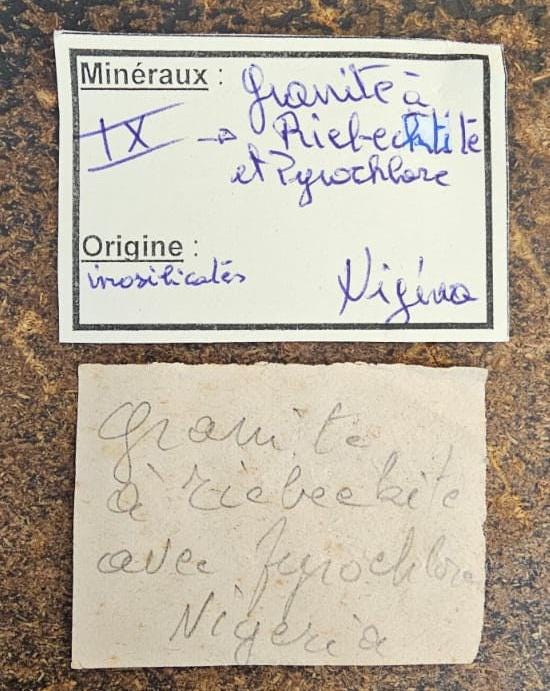 Minéraux : Granite à
IX → Riebeckitite
et Pyrochlore
Origine :
inosilicatés Nigéria
Granite
à riebeckite
avec pyrochlore
Nigeria